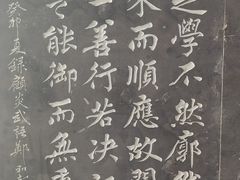 之學不然廓然
來而順應故習
一善行若決江
之能御而無
癸卯夏錄顧炎武語鄭